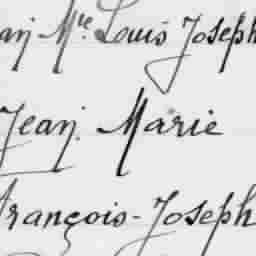 Mie Louis Joseph
Jean Marie
François-Joseph